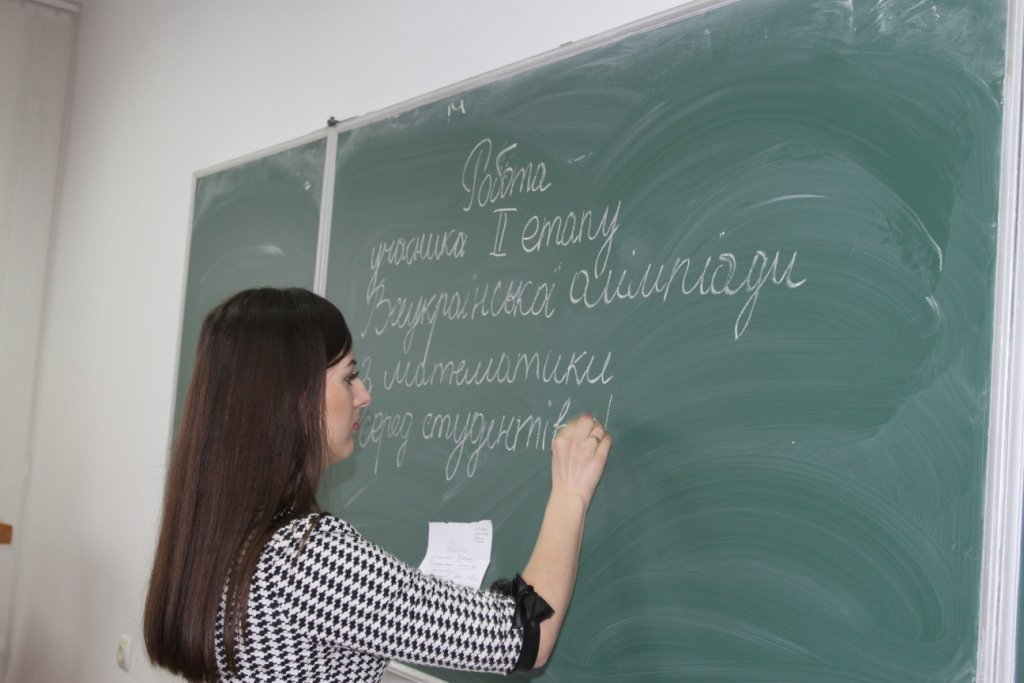 Робота
учасника II етапу
Всеукраїнської олімпіади
з математики
серед студентів